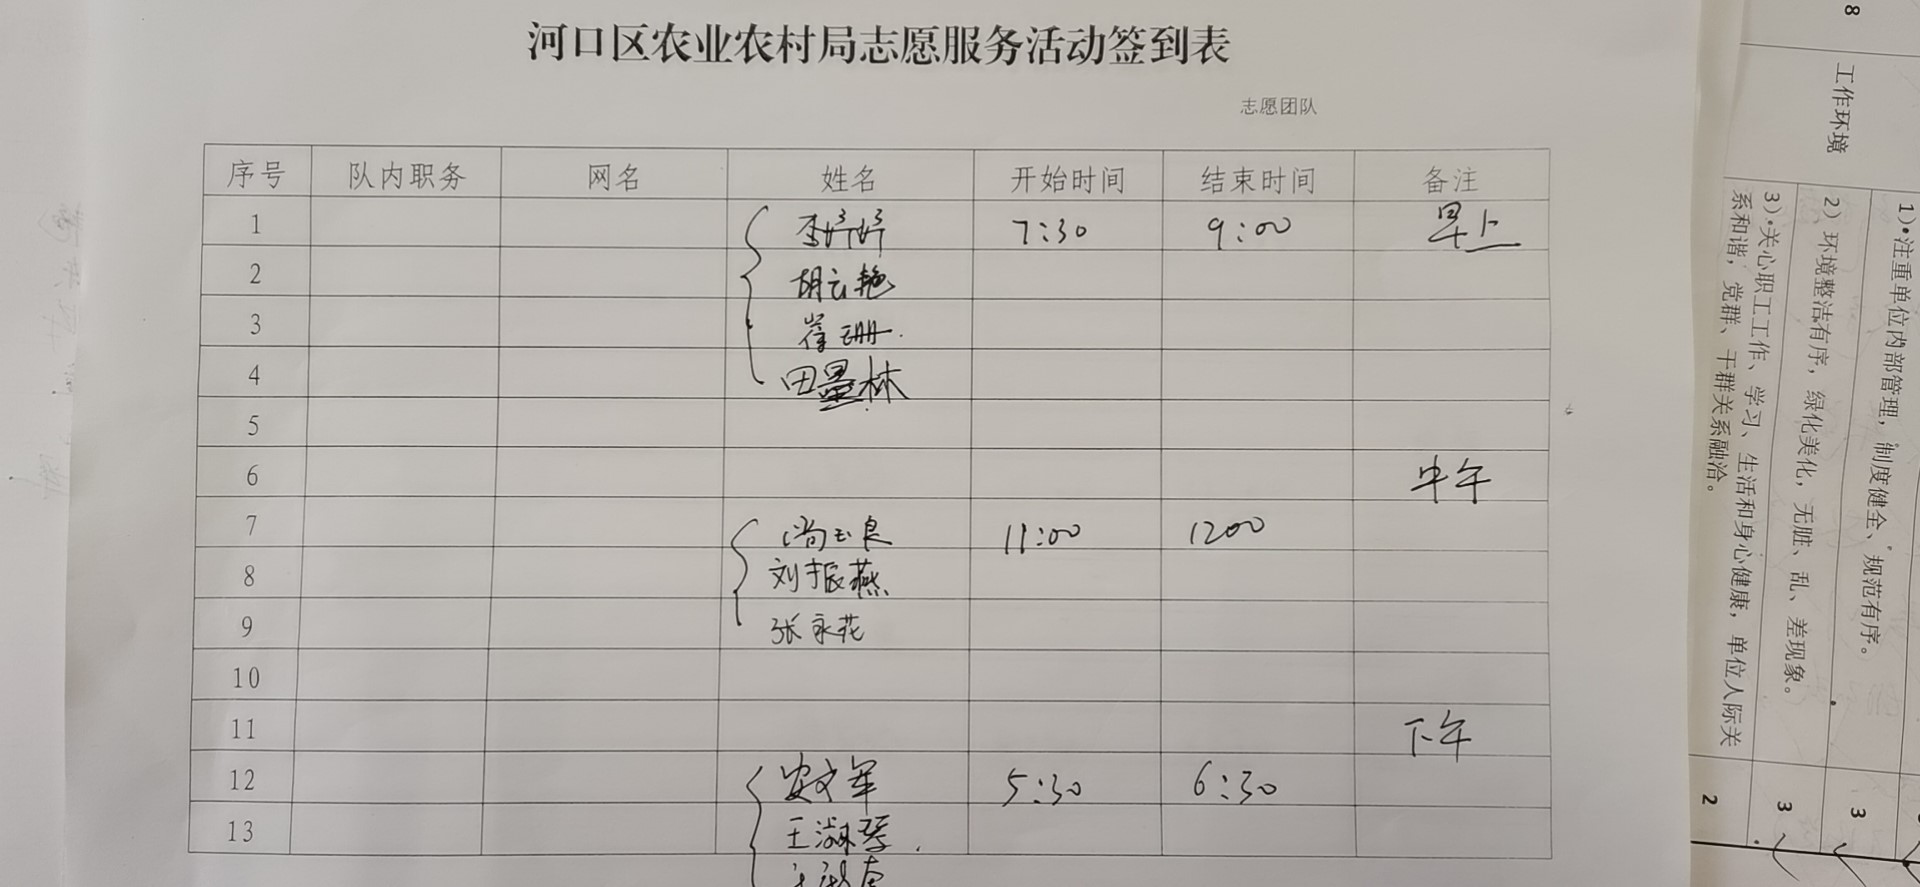 河口区农业农村局志愿服务活动签到表
志愿团队
序号 队内职务 网名 姓名 开始时间 结束时间 备注
1 李婷婷 7:30 9:00 早上
2 胡云艳
3 崔珊.
4 田墨林
5
6 中午
7 尚玉良 11:00 1200
8 刘振燕
9 张永花
10
11 下午
12 安文军 5:30 6:30
13 王淑琴.
8
工作环境
1)注重单位内部管理,制度健全、规范有序。
2)环境整洁有序,绿化美化,无脏、乱、差现象。
3)关心职工工作、学习、生活和身心健康,单位人际关
系和谐,党群、干群关系融洽。
3
3
2